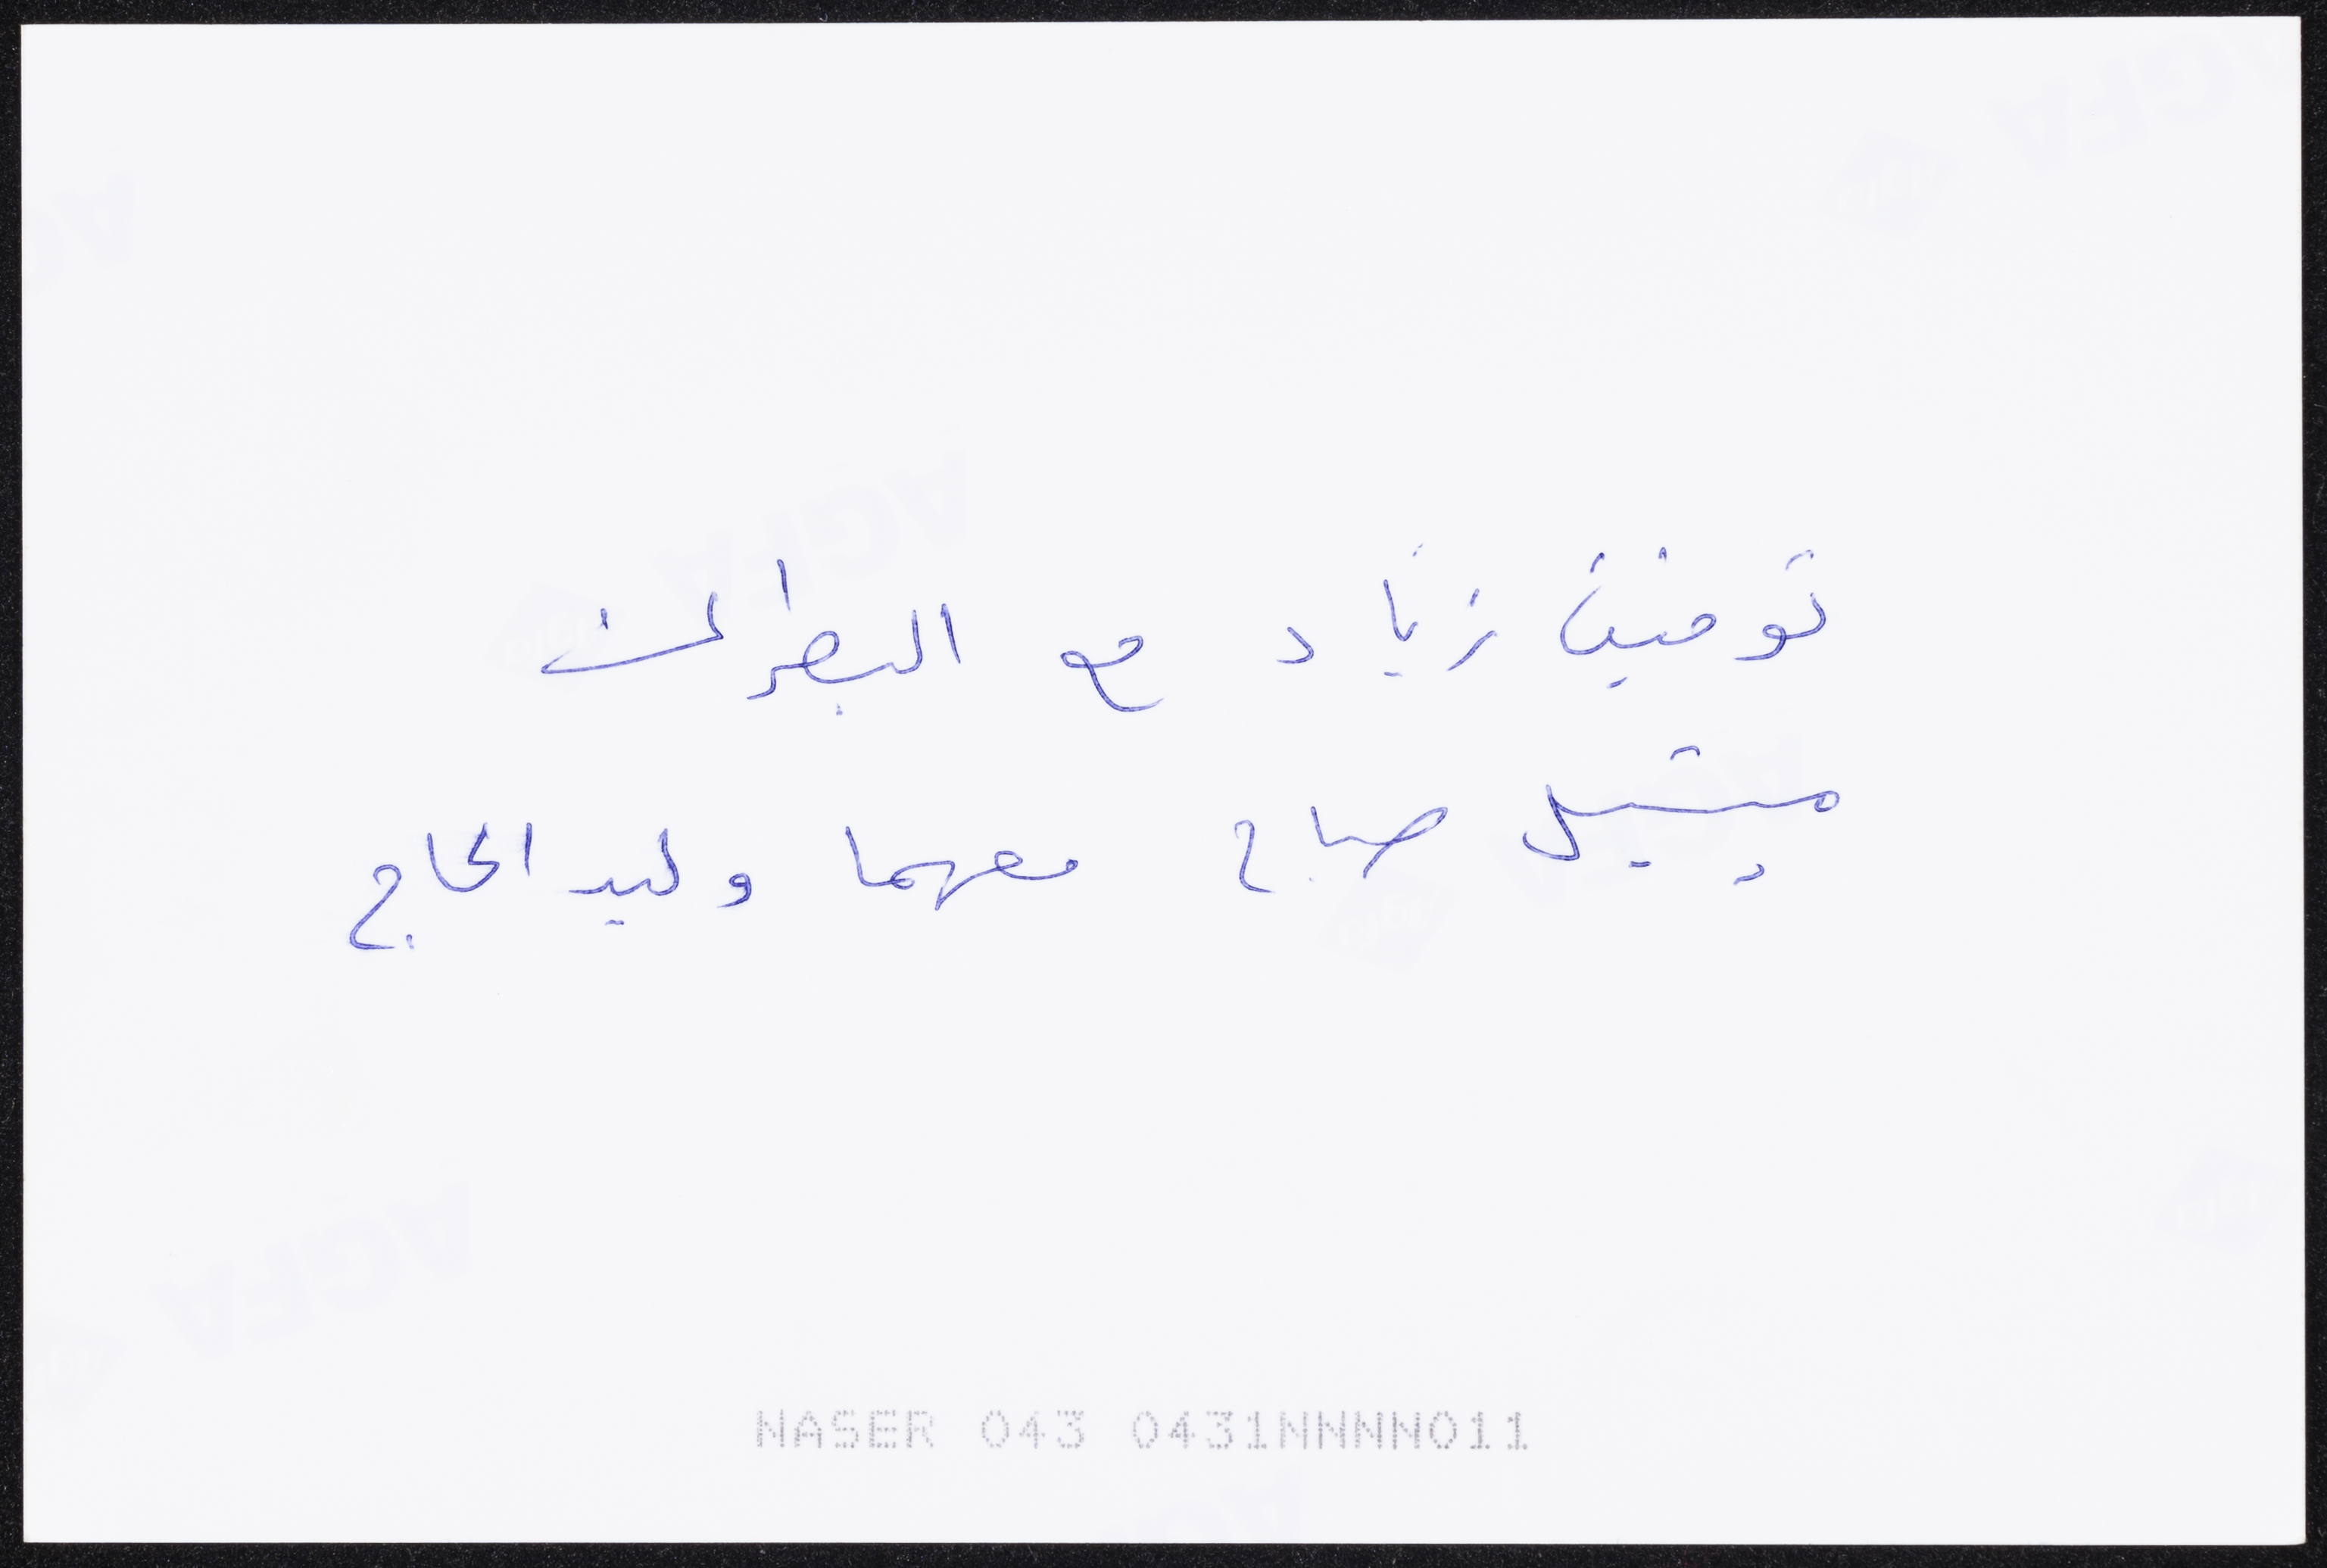 توفيق زياد مع البطرك
ميشيل صباح معهما وليد الحاج
NASER 043 0431NNNNN011
AGFA